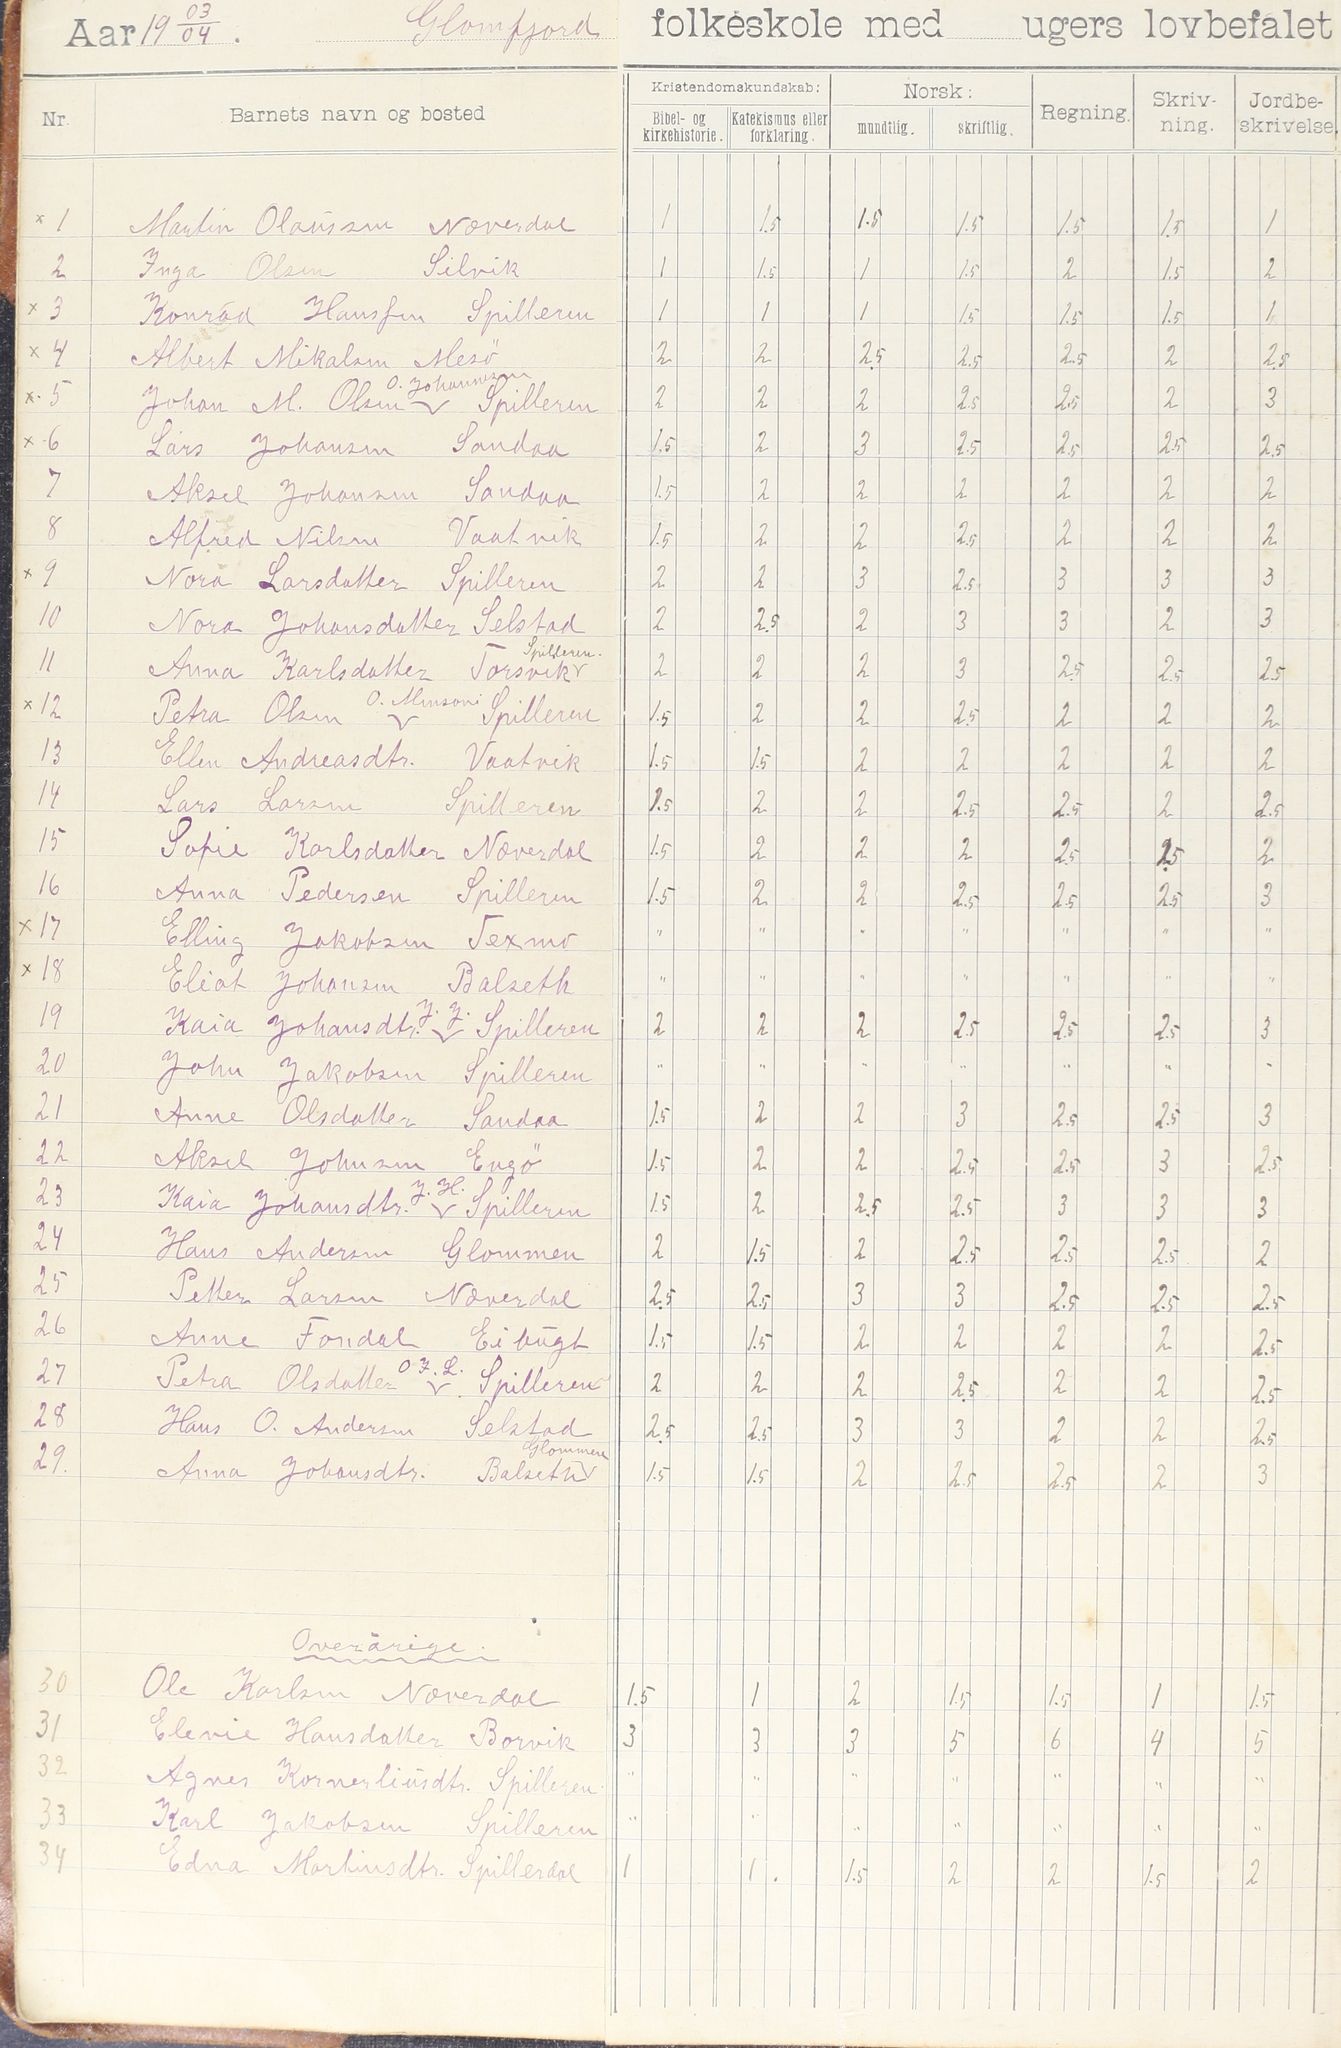 Aar 19 03/04. Glomfjord folkeskole med ugers lovbefalet
Nr. Barnets navn og bosted Kristendomskundskab: Norsk: Regning. Skriv-ning. Jordbe-skrivelse.
Bibel- og kirkehistorie. Katekismus eller forklaring. mundtlig. skriftlig.
× 1 Martin Olaussen Næverdal 1 1.5 1.5 1.5 1.5 1.5 1
2 Inga Olsen Silvik 1 1.5 1 1.5 2 1.5 2
× 3 Konrad Hansen Spilleren 1 1 1 1.5 1.5 1.5 1
× 4 Albert Mikalsen Mesö 2 2 2.5 2.5 2.5 2 2.5
O. Johannesen
× 5 Johan M. Olsen Spilleren 2 2 2 2.5 2.5 2 3
× 6 Lars Johansen Sandaa 1.5 2 3 2.5 2.5 2.5 2.5
7 Aksel Johansen Sandaa 1.5 2 2 2 2 2 2
8 Alfred Nilsen Vaatvik 1.5 2 2 2.5 2 2 2
× 9 Nora Larsdatter Spilleren 2 2 3 2.5 3 3 3
10 Nora Johansdatter Selstad 2 2.5 2 3 3 2 3
Spilleren.
11 Anna Karlsdatter Torsvik 2 2 2 3 2.5 2.5 2.5
× 12 Petra Olsen O. Spilleren 1.5 2 2 2.5 2 2 2
13 Ellen Andreasdtr. Vaatvik 1.5 1.5 2 2 2 2 2
14 Lars Larsen Spilleren 1.5 2 2 2.5 2.5 2 2.5
15 Sofie Karlsdatter Næverdal 1.5 2 2 2 2.5 2.5 2
16 Anna Pedersen Spilleren 1.5 2 2 2.5 2.5 2.5 3
× 17 Elling Jakobsen Texmo " " " " " " "
× 18 Eliot Johansen Balseth " " " " " " "
19 Kaia Johansdtr. J. J. Spilleren 2 2 2 2.5 2.5 2.5 3
20 John Jakobsen Spilleren " " " " " " "
21 Anne Olsdatter Sandaa 1.5 2 2 3 2.5 2.5 3
22 Aksel Johnsen Engö 1.5 2 2 2.5 2.5 3 2.5
23 Kaia Johansdtr. J. H. Spilleren 1.5 2 2.5 2.5 3 3 3
24 Hans Andersen Glommen 2 1.5 2 2.5 2.5 2.5 2
25 Petter Larsen Næverdal 2.5 2.5 3 3 2.5 2.5 2.5
26 Anne Fondal Eibugt 1.5 1.5 2 2 2 2 2.5
27 Petra Olsdatter O. J. L. Spilleren 2 2 2 2.5 2 2 2.5
28 Hans O. Andersen Selstad 2.5 2.5 3 3 2 2 2.5
Glommen
29. Anna Johansdtr. Balseth 1.5 1.5 2 2.5 2.5 2 3
Overårige.
30 Ole Karlsen Næverdal 1.5 1 2 1.5 1.5 1 1.5
31 Elevie Hansdatter Borvik 3 3 3 5 6 4 5
32 Agnes Kornerliusdtr. Spilleren. " " " " " " "
33 Karl Jakobsen Spilleren " " " " " " "
34 Edna Martinsdtr. Spillerdal 1 1. 1.5 2 2 1.5 2